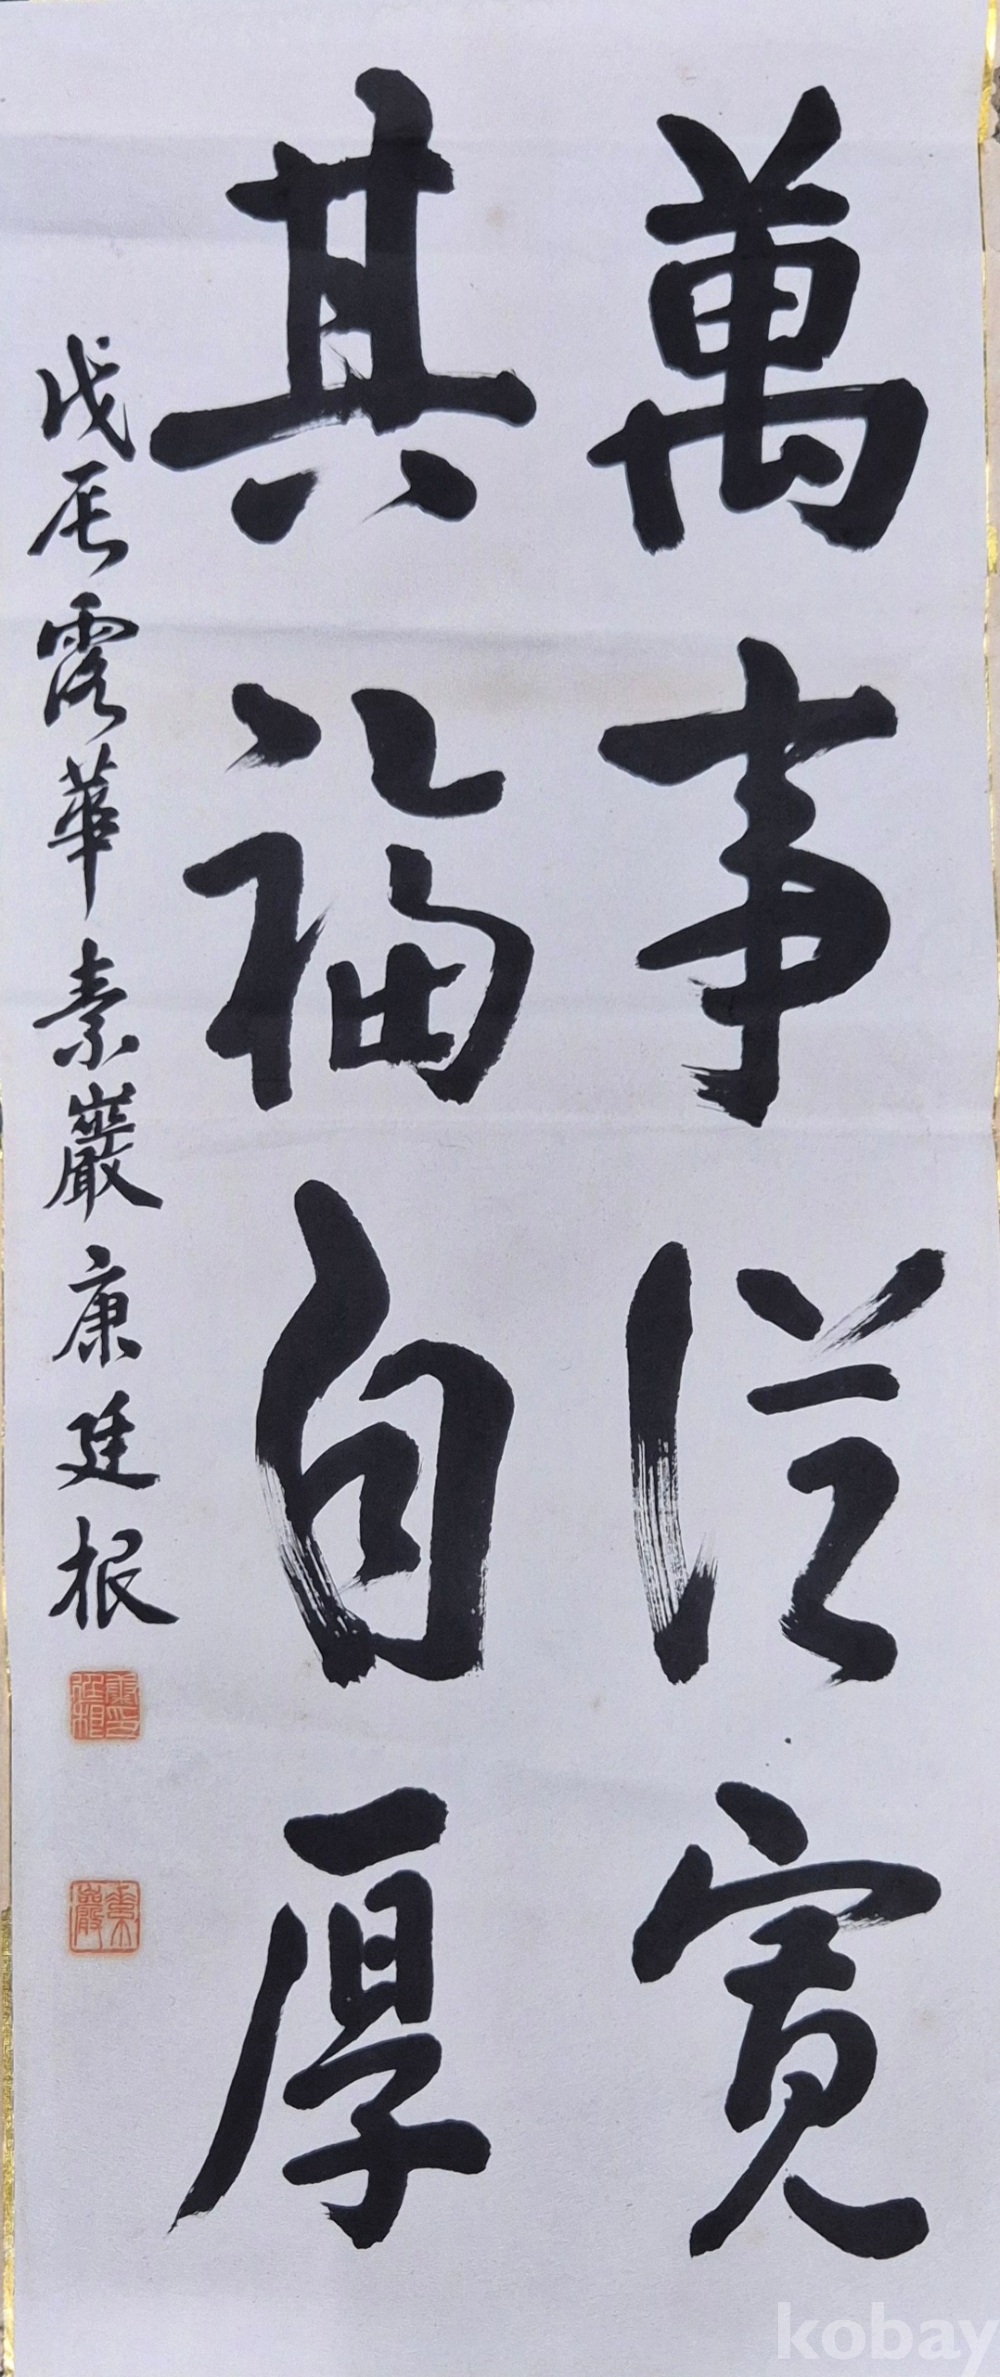 萬事從寬
其福自厚
戊辰露華素巖康廷根
kobay